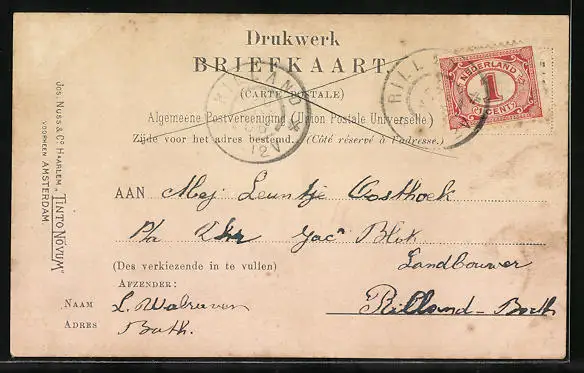 Drukwerk
BRIEFKAART
(CARTE POSTALE)
Algemeene Postvereeniging (Union Postale Universelle)
Zijde voor het adres bestemd. (Côté réservé à l'adresse.)
RILLAND
RILL
NEDERLAND
1
CENT
AAN Mej Leuntje Oosthoek
p/a Jac Blok
Landbouwer
Rilland-Bath
(Des verkiezende in te vullen)
AFZENDER:
NAAM L. Walraven
ADRES Bath.
Jos. Nuss & Co Haarlem, „TINTO NOVUM"
VOORHEEN AMSTERDAM.